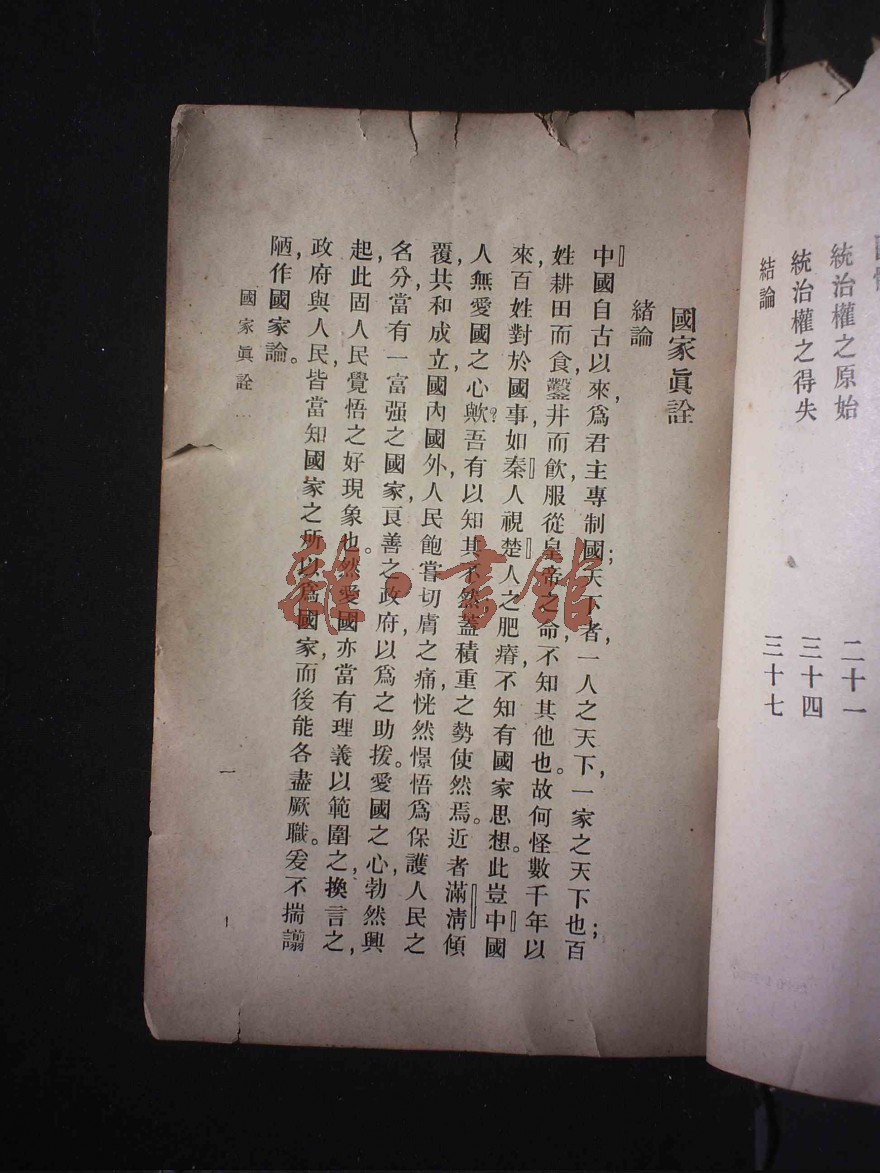 統治權之原始 二十一
統治權之得失 三十四
結論 三十七
國家眞詮
緒論
中國自古以來,爲君主專制國;天下者,一人之天下,一家之天下也;百
姓耕田而食,鑿井而飮,服從皇帝之命,不知其他也。故何怪數千年以
來,百姓對於國事,如秦人視楚人之肥瘠,不知有國家思想。此豈中國
人無愛國之心歟?吾有以知其不然,蓋積重之勢使然焉。近者滿淸傾
覆,共和成立,國內國外,人民飽嘗切膚之痛,恍然憬悟,爲保護人民之
名分,當有一富强之國家,良善之政府,以爲之助援。愛國之心,勃然興
起,此固人民覺悟之好現象也。然愛國亦當有理義以範圍之,換言之,
政府與人民,皆當知國家之所以爲國家,而後能各盡厥職。爰不揣譾
陋,作國家論。
國家眞詮
一
雜·書館